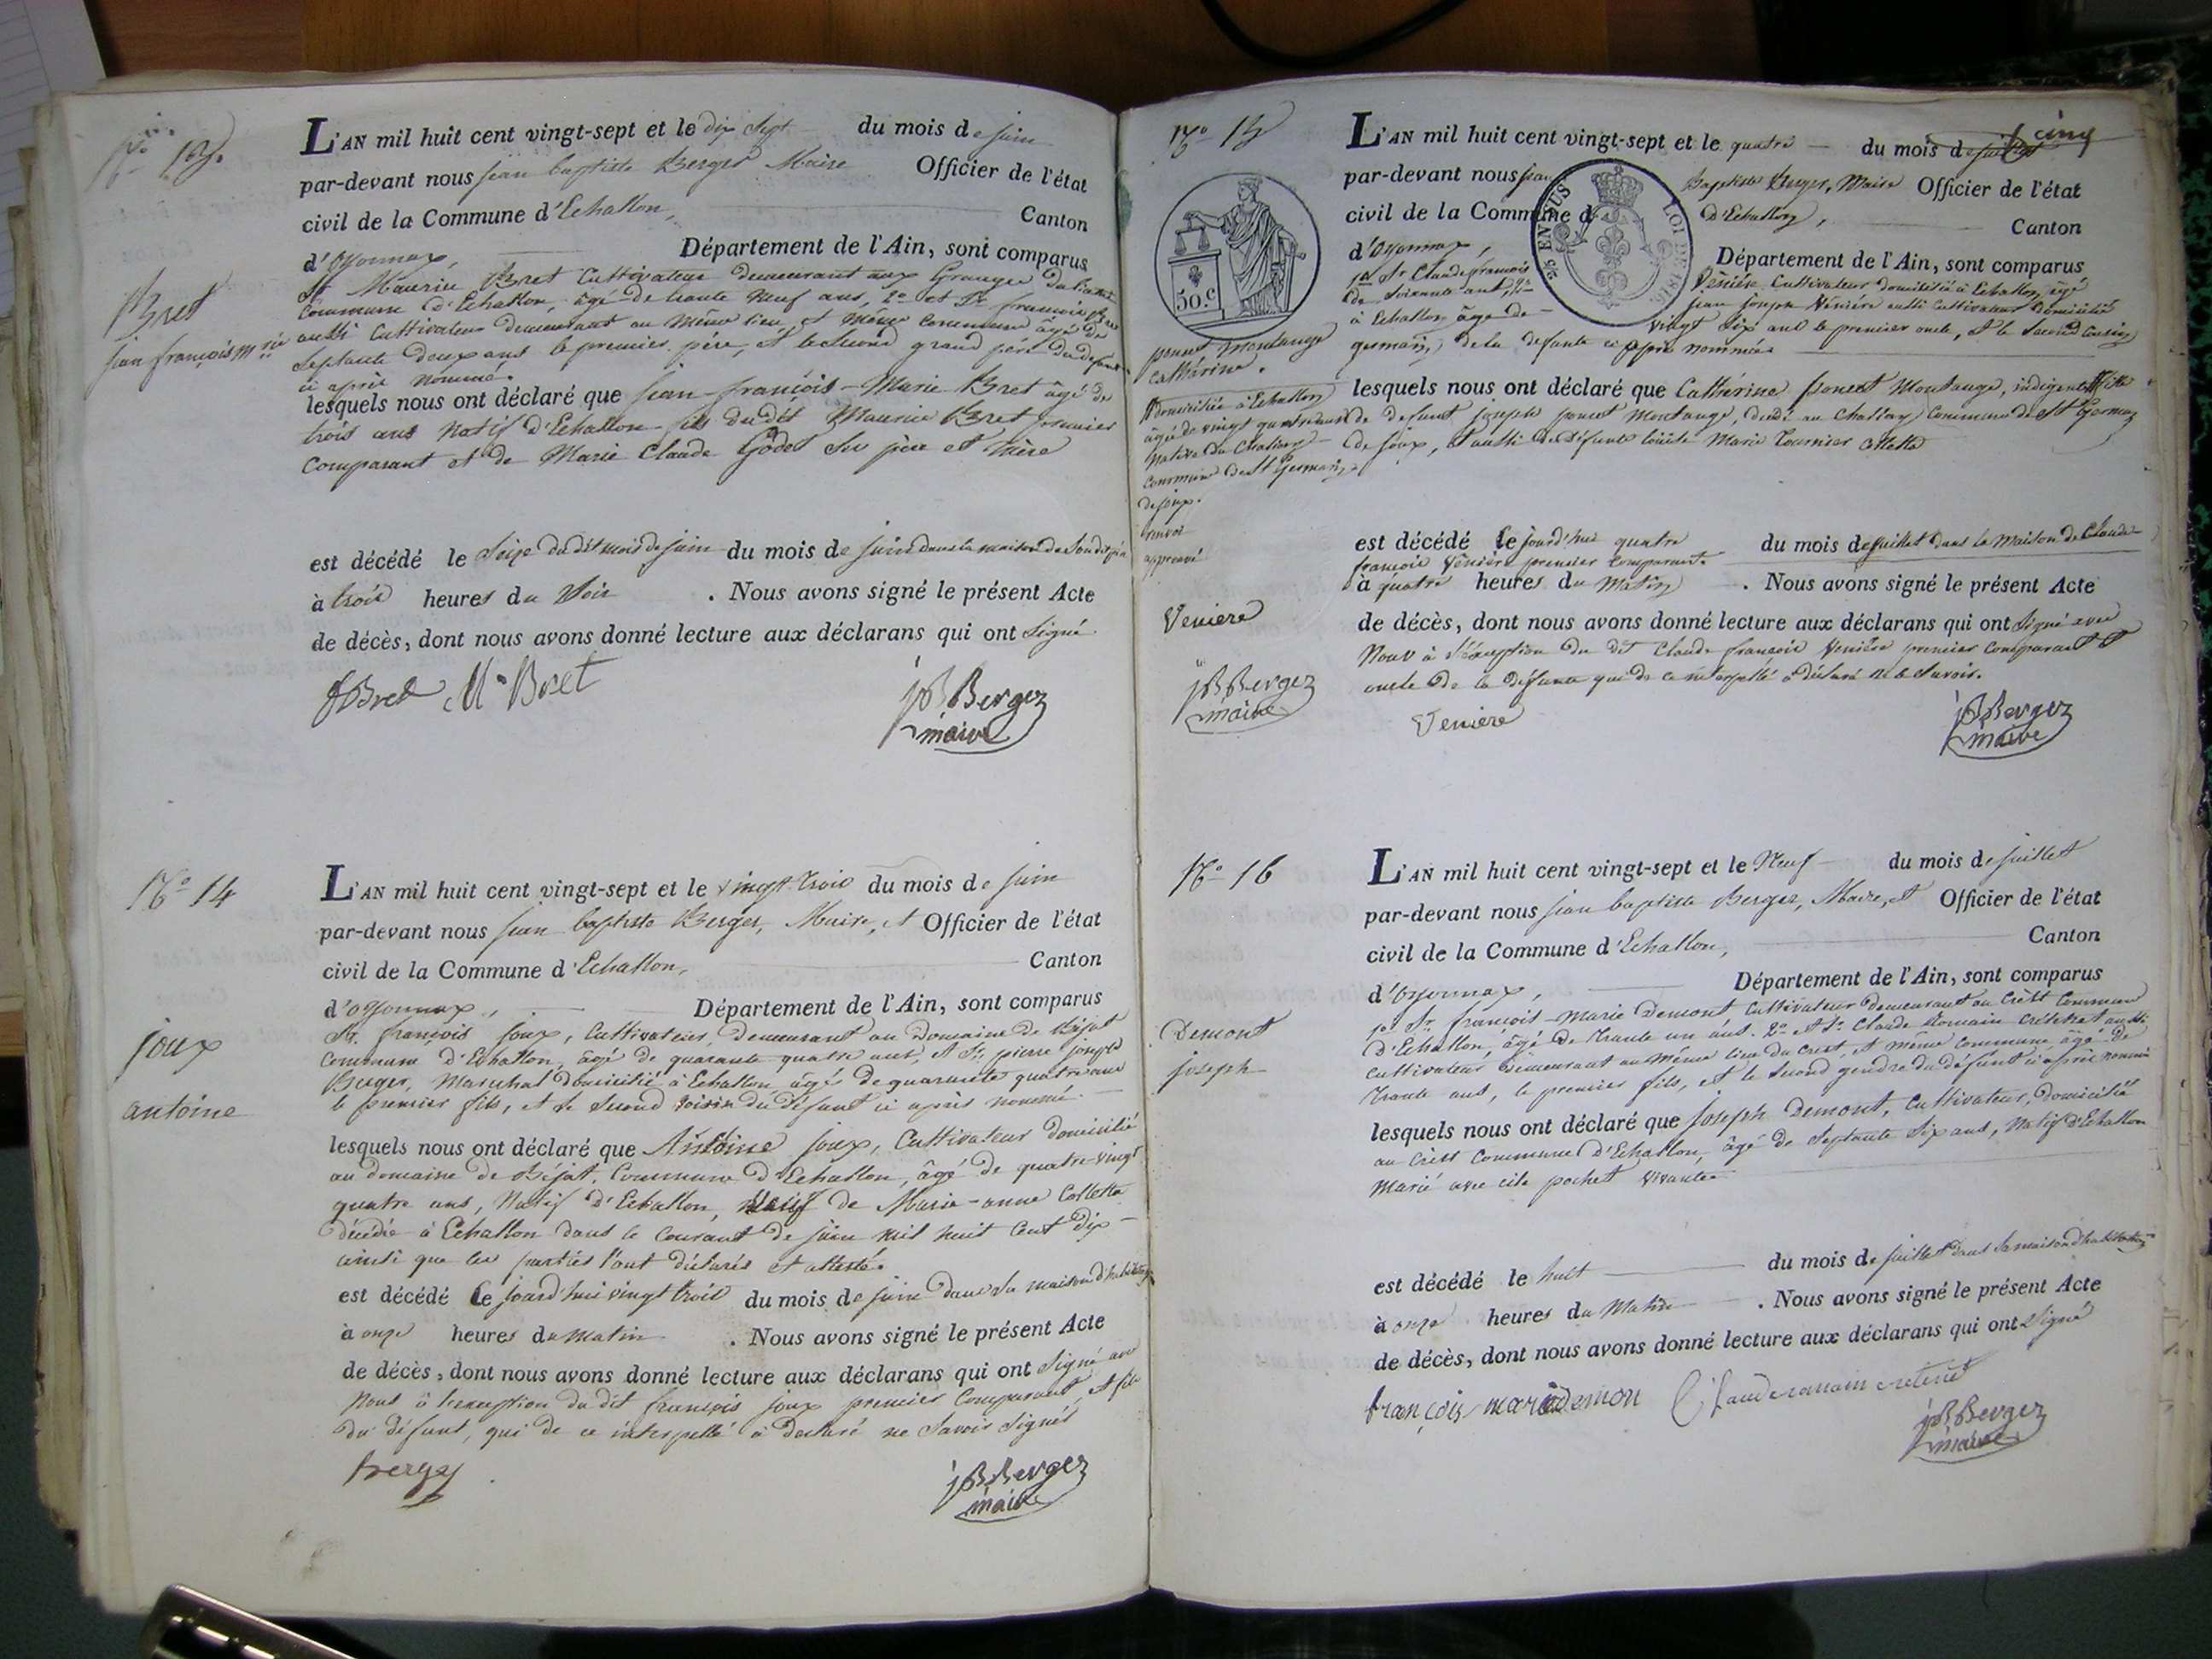 N.º 13.
L'AN mil huit cent vingt-sept et le dix sept du mois de juin
par-devant nous jean baptiste Berger Maire Officier de l'état
civil de la Commune d'Echallon, Canton
d'Oyonnax, Département de l'Ain, sont comparus
Sr Maurice Bret Cultivateur demeurant aux Granges
Commune d'Echallon, âgé de trente neuf ans, 2º et Sr françois Bret
aussi Cultivateur demeurant au même lieu et même commune âgé de
septante deux ans le premier père, et le second grand père du défunt
ci après nommé.
Bret
jean françois mrie
lesquels nous ont déclaré que jean-françois-Marie Bret âgé de
trois ans natif d'Echallon fils dudit Maurice Bret premier
comparant et de Marie Claude Godet ses père et mère
est décédé le seize dudit mois de juin du mois de juin dans la maison de sondit père
à trois heures du soir . Nous avons signé le présent Acte
de décès, dont nous avons donné lecture aux déclarans qui ont signé
fBret M Bret
jBBerger
maire
N.º 14
L'AN mil huit cent vingt-sept et le vingt-trois du mois de juin
par-devant nous jean baptiste Berger, Maire, et Officier de l'état
civil de la Commune d'Echallon, Canton
d'oyonnax, Département de l'Ain, sont comparus
Sr. françois joux, Cultivateur, demeurant au Domaine de Béjat
Commune d'Echallon, âgé de quarante quatre ans, et Sr. pierre joseph
Berger, Maréchal domicilié à Echallon âgé de quarante quatre ans
le premier fils, et le second voisin du défunt ci après nommé.
joux
antoine
lesquels nous ont déclaré que Antoine joux, Cultivateur domicilié
au domaine de Béjat, Commune d'Echallon, âgé de quatre-vingt
quatre ans, Natif d'Echallon, veuf de Marie-anne Colletta
décédée à Echallon dans le courant de juin mil huit cent dix
ainsi que les parties l'ont déclaré et attesté.
est décédé le jourd'hui vingt trois du mois de juin dans sa maison d'habitation
à onze heures du matin . Nous avons signé le présent Acte
de décès, dont nous avons donné lecture aux déclarans qui ont signé avec
nous à l'exception du dit françois joux premier comparant, et fils
du défunt, qui de ce interpellé à déclaré ne savoir signer
berger
jBBerger
maire
cinq
N.º 15
L'AN mil huit cent vingt-sept et le quatre du mois de juillet
par-devant nous jean Baptiste Berger, Maire Officier de l'état
civil de la Commune d'Echallon, Canton
d'Oyonnax, Département de l'Ain, sont comparus
1º Sr Claude françois Venière, Cultivateur domicilié à Echallon, âgé
de soixante ans, 2º jean joseph Venière aussi Cultivateur domicilié
à Echallon âgé de vingt six ans le premier oncle, et le second cousin
germain, de la defunte ci après nommée
50.c
EN SUS
LOI DE 1816.
poncet Montange
Catherine.
domiciliée à Echallon
âgée de vingt quatre ans
Native du Chaliay
Commune de St Germain
de joux.
renvoi
approuvé
Veniere
jBBerger
maire
lesquels nous ont déclaré que Catherine poncet Montange, indigente fille
de defunt joseph poncet Montange, décédé au Chaliay Commune de St Germain
de joux, et aussi de défunte Marie Tournier Colletta
est décédé le jourd'hui quatre du mois de juillet dans la maison de Claude
françois Venière premier comparant.
à quatre heures du Matin . Nous avons signé le présent Acte
de décès, dont nous avons donné lecture aux déclarans qui ont signé avec
nous à l'exception du dit Claude françois Venière premier comparant et
oncle de la défunte qui de ce interpellé a déclaré ne le savoir.
Veniere
jBBerger
maire
N.º 16
L'AN mil huit cent vingt-sept et le Neuf du mois de juillet
par-devant nous jean baptiste Berger, Maire, et Officier de l'état
civil de la Commune d'Echallon, Canton
d'Oyonnax, Département de l'Ain, sont comparus
1º Sr. françois-Marie Demont Cultivateur demeurant au Crêt Commune
d'Echallon, âgé de trente un ans. 2º et Sr. Claude Romain Crétenet aussi
cultivateur demeurant au même lieu du Crest, et même Commune âgé de
trente ans, le premier fils, et le second gendre du défunt ci après nommé
Demont
joseph
lesquels nous ont déclaré que joseph Demont, Cultivateur, domicilié
au Crêt Commune d'Echallon, âgé de septante six ans, Natif d'Echallon
Marié avec pochet vivante
est décédé le huit du mois de juillet dans sa maison d'habitation
à onze heures du Matin . Nous avons signé le présent Acte
de décès, dont nous avons donné lecture aux déclarans qui ont signé
françois mariedemon Clauderomain cretenet
jBBerger
maire